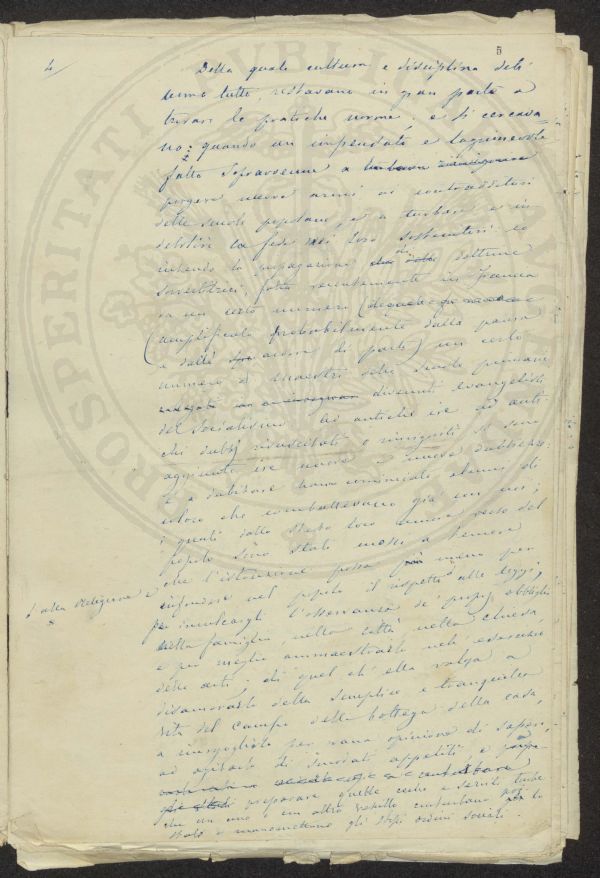 4
5
Della quale cultura e disciplina dell'
uomo tutto, restavano in gran parte a
trovare le pratiche norme, e si cercava-
no: quando un impensato e lagrimevole
fatto sopravvenne a
porgere nuove armi ai contraddittori
delle scuole popolane, e a turbare e in
debolire la fede nei loro sostenitori. Io
intendo la propagazione di dottrine
sovvertitrici fatta recentemente in Francia
da un certo numero
(amplificato probabilmente dalla paura
e dalle di parte) un certo
numero di maestri delle scuole primarie
divenuti evangelisti
del socialismo. Ad antiche ire ad anti
chi dubbj resuscitati o rinvigoriti si sono
aggiunte ire nuove e nuove dubbiezze:
e a dubitare hanno cominciato alcuni di
coloro che combattevano già con noi;
i quali dallo stesso loro amore verso del
popolo sono stati mossi a temere
che l'istruzione possa meno per
infondere nel popolo il rispetto alle leggi,
alla Religione e
per inculcargli l'osservanza de' proprj obblighi
nella famiglia, nella città, nella chiesa
e per meglio ammaestrarlo nell'esercizio
delle arti, di quel ch'ella valga a
disamorarlo della semplice e tranquilla
vita del campo della bottega della casa,
a invogliarlo per vana opinione di sapere,
ad agitarlo di smodati appetiti e
preparare quelle cieche e servili turbe
che un anno o un altro
stato e manomettono gli stessi ordini sociali.